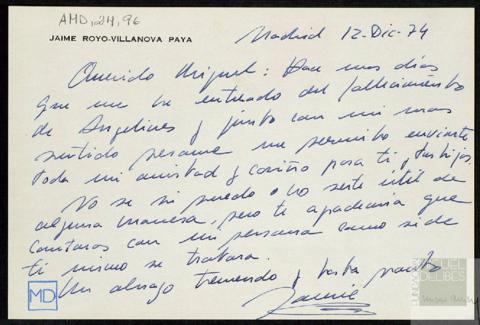 AMD,24,96
JAIME ROYO-VILLANOVA PAYA
Madrid 12-Dic-74
Querido Miguel: Hace unos dias
que me he enterado del fallecimiento
de Angelines y junto con mi mas
sentido pesame me permito enviarte
toda mi amistad y cariño para ti y tus hijos.
No se si puedo o no serte útil de
alguna manera, pero te agradeceria que
contaras con mi persona como si de
ti mismo se tratara.
Un abrazo tremendo y hasta pronto
Jaime
MD
MIGUEL
DELIBES